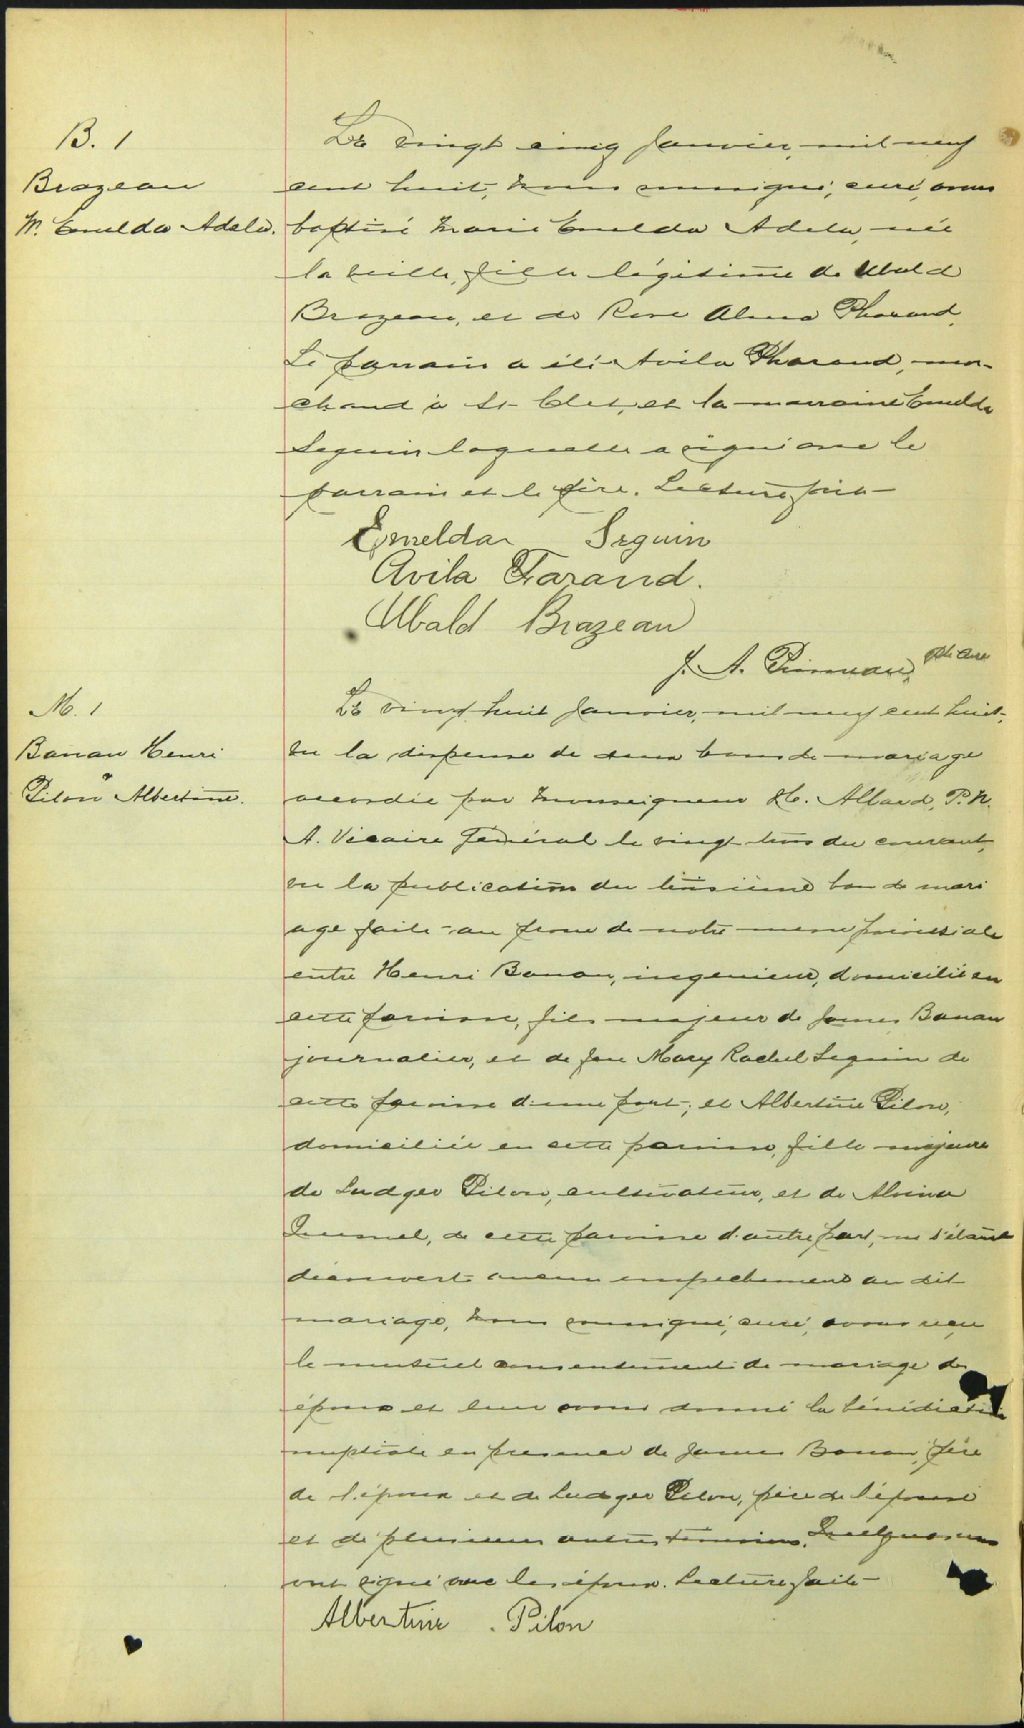 B. 1
Brazeau
M. Emelda Adela.
Le vingt cinq Janvier, mil neuf
cent huit, nous soussigné, curé, avons
baptisé Marie Emelda Adela, née
la veille, fille légitime de Ubald
Brazeau, et de Rose Alma Pharand.
Le parrain a été Avila Pharand, mar-
chand à St Clet, et la marraine Emelda
Seguin laquelle a signé avec le
parrain et le père. Lecture faite
Emelda Seguin
Avila Farand.
Ubald Brazeau
J. A. Primeau, Ptre Curé
M. 1
Banan Henri
&
Pilon Albertine.
Le vingt huit Janvier, mil neuf cent huit,
vu la dispense de deux bans de mariage
accordée par Monseigneur H. Allard, P.
A. Vicaire Général le vingt trois du courant,
vu la publication du troisième ban de mari
age faite au prône de notre messe paroissiale
entre Henri Banan, ingenieur, domicilié en
cette paroisse, fils majeur de James Banan
journalier, et de feu Mary Rachel Seguin de
cette paroisse d'une part; et Albertine Pilon,
domiciliée en cette paroisse, fille majeure
de Ludger Pilon, cultivateur, et de Alvina
de cette paroisse d'autre part, ne s'étant
découvert aucun empechement au dit
mariage, nous soussigné, curé, avons reçu
le mutuel consentement de mariage des
époux et leur avons donné la bénédiction
nuptiale en presence de James Banan, père
de l'époux et de Ludger Pilon, père de l'épouse
et de plusieurs autres témoins. Quelques uns
ont signé avec les époux. Lecture faite
Albertine Pilon